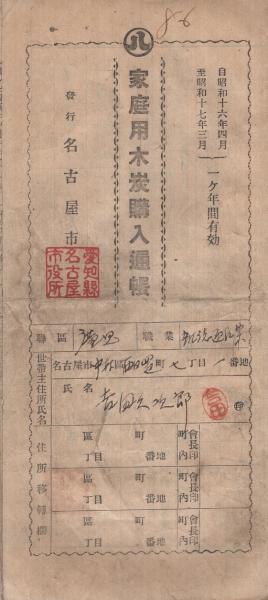 8-6
八
自昭和十六年四月
至昭和十七年三月
一ケ年間有効
家庭用木炭購入通帳
發行 名古屋市
愛知縣
名古屋
市役所
聯區
職業
世帶主住所氏名
名古屋市 區 町 七丁目 一番地
氏名
吉田 次郎
吉田
印
住所移轉欄
區 町 町內會長印
丁目 番地
區 町 町內會長印
丁目 番地
區 町 町內會長印
丁目 番地